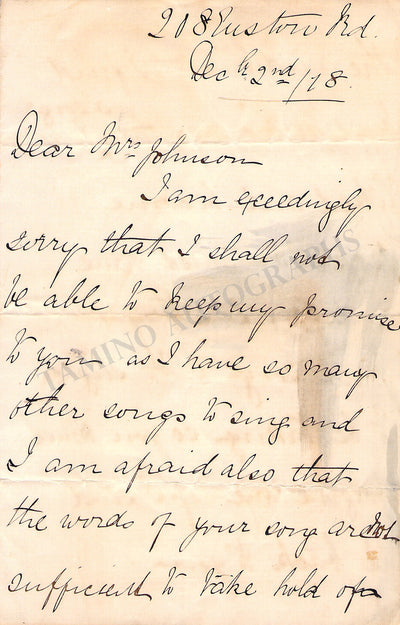 208 Euston Rd.
Decbr 2nd/18.
Dear Mrs Johnson
I am exceedingly
sorry that I shall not
be able to keep my promise
to you as I have so many
other songs to sing and
I am afraid also that
the words of your song are not
sufficient to take hold of
TAMINO AUTOGRAPHS